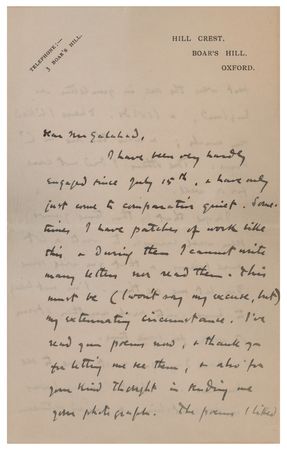 TELEPHONE:—
3 BOAR'S HILL.
HILL CREST,
BOAR'S HILL,
OXFORD.
Dear Mr Galahad,
I have been very hardly
engaged since July 15th, & have only
just come to comparative quiet. Some-
times I have patches of work like
this & during them I cannot write
many letters nor read them. This
must be (I won't say my excuse, but)
my extenuating circumstance. I've
read your poems now, & thank you
for letting me see them, & also for
your kind thought in sending me
your photograph. The poems I liked